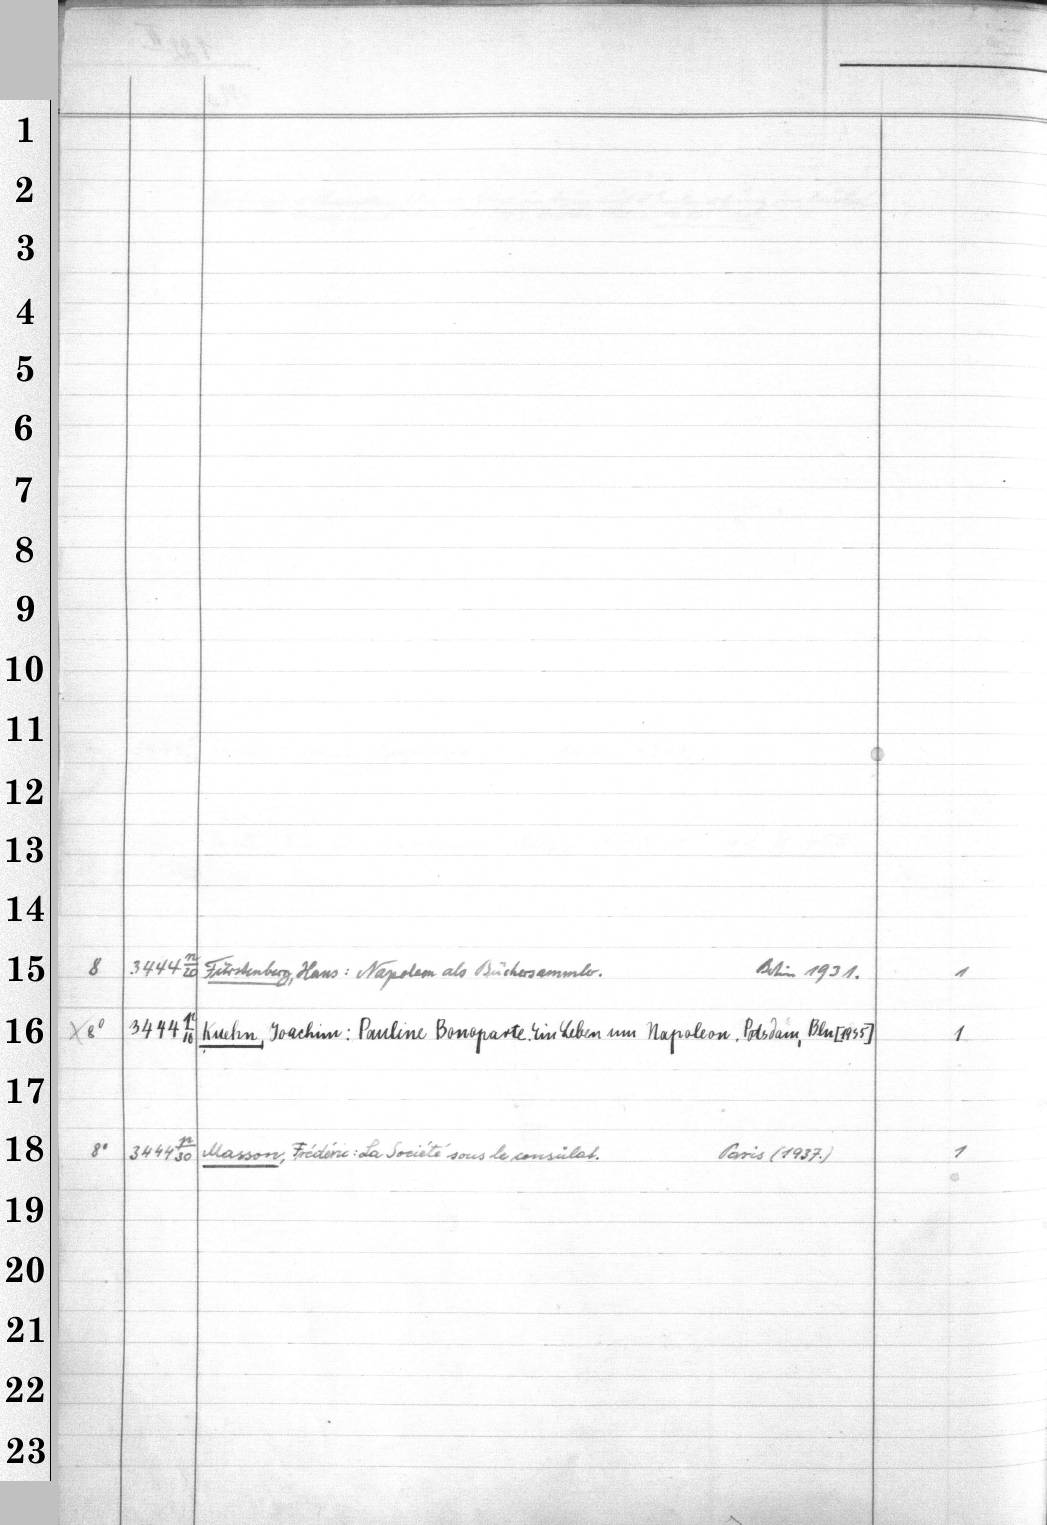 1
2
3
4
5
6
7
8
9
10
11
12
13
14
15 8 3444 n/20 Fürstenberg, Hans: Napoleon als Büchersammler. Berlin 1931. 1
16 X 8° 3444 n/16 Kuehn, Joachim: Pauline Bonaparte. Ein Leben um Napoleon. Potsdam, Bln [1935] 1
17
18 8° 3444 n/30 Masson, Frédéric: La Société sous le consulat. Paris (1937.) 1
19
20
21
22
23